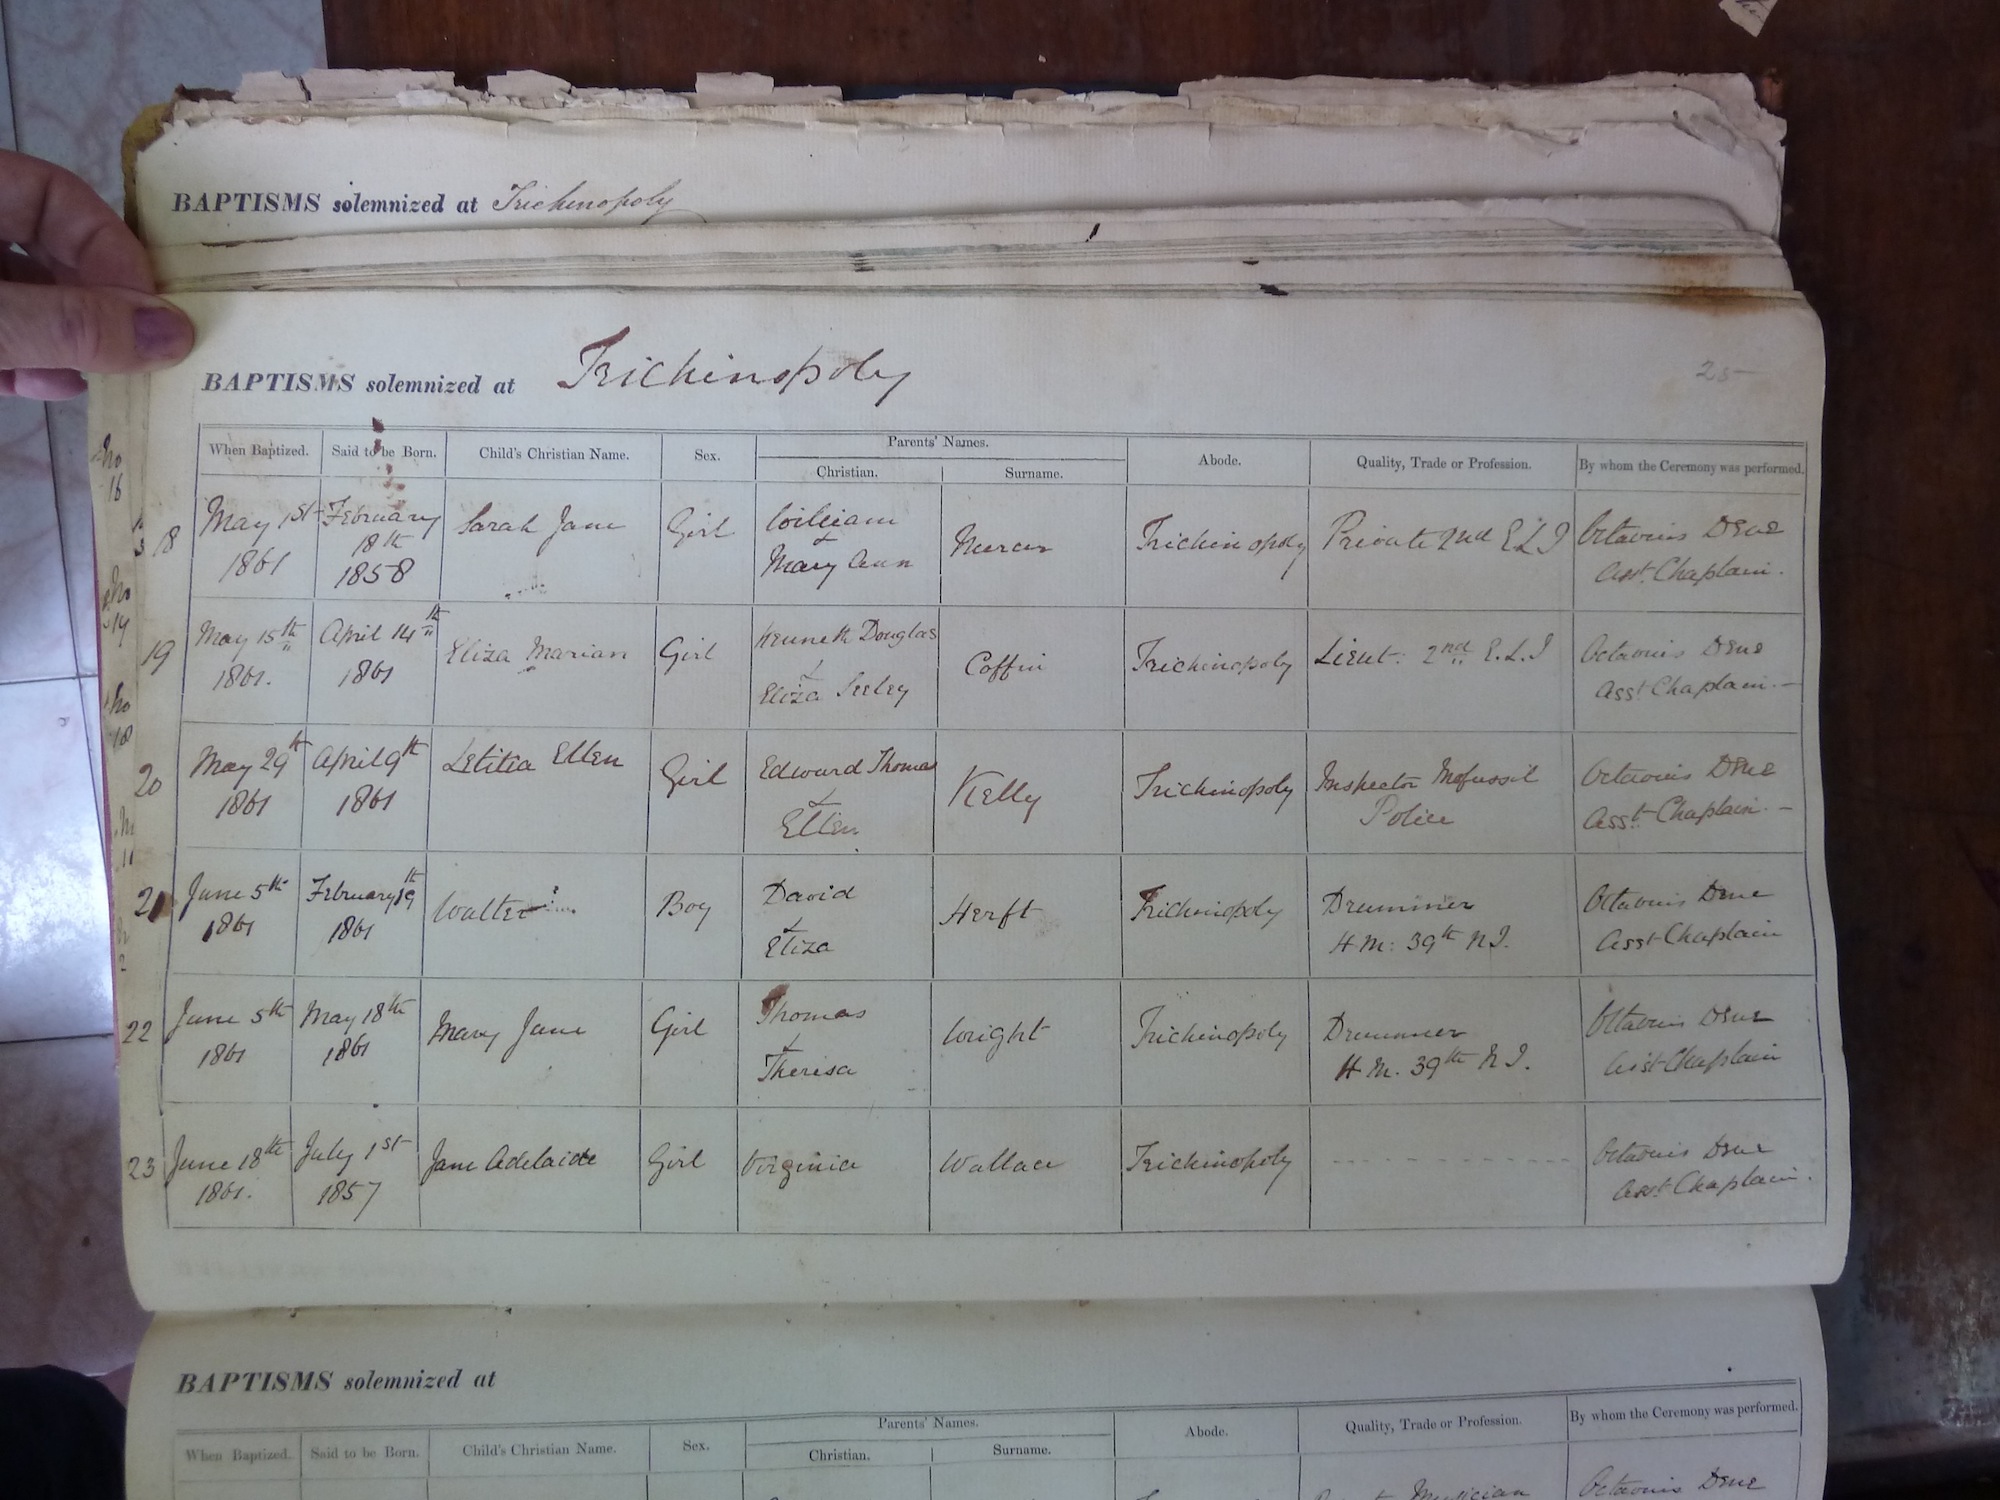 BAPTISMS solemnized at Trichinopoly
BAPTISMS solemnized at Trichinopoly
25
When Baptized. Said to be Born. Child's Christian Name. Sex. Parents' Names. Abode. Quality, Trade or Profession. By whom the Ceremony was performed.
Christian. Surname.
18 May 1st 1861 February 18th 1858 Sarah Jane Girl William & Mary Ann Mercer Trichinopoly Private 2nd E.L.I Octavius Dene Asst. Chaplain.
19 May 15th 1861. April 14th 1861 Eliza Marian Girl Kenneth Douglas & Eliza Seeley Coffin Trichinopoly Lieut: 2nd E.L.I Octavius Dene Asst Chaplain.—
20 May 29th 1861 April 9th 1861 Letitia Ellen Girl Edward Thomas & Ellen. Kelly Trichinopoly Inspector Mofussil Police Octavius Dene Asst. Chaplain.—
21 June 5th 1861 February 19th 1861 Walter Boy David & Eliza Herft Trichinopoly Drummer H.M: 39th N.I. Octavius Dene Asst Chaplain
22 June 5th 1861 May 18th 1861 Mary Jane Girl Thomas & Theresa Wright Trichinopoly Drummer H.M. 39th N.I. Octavius Dene Asst Chaplain
23 June 18th 1861. July 1st 1857 Jane Adelaide Girl Virginia Wallace Trichinopoly Octavius Dene Asst Chaplain.
BAPTISMS solemnized at
When Baptized. Said to be Born. Child's Christian Name. Sex. Parents' Names. Abode. Quality, Trade or Profession. By whom the Ceremony was performed.
Christian. Surname.
Musician Octavius Dene